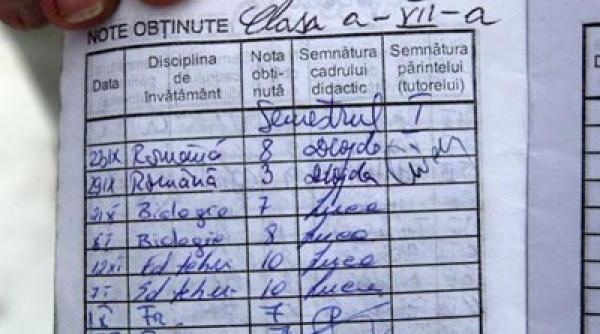 NOTE OBȚINUTE Clasa a-VII-a
Data Disciplina de învățământ Nota obți-nută Semnătura cadrului didactic Semnătura părintelui (tutorelui)
Semestrul I
23 IX Română 8
29 IX Română 3
Biologie 7
Biologie 8
Ed tehn. 10
Ed tehn. 10
Fr. 7